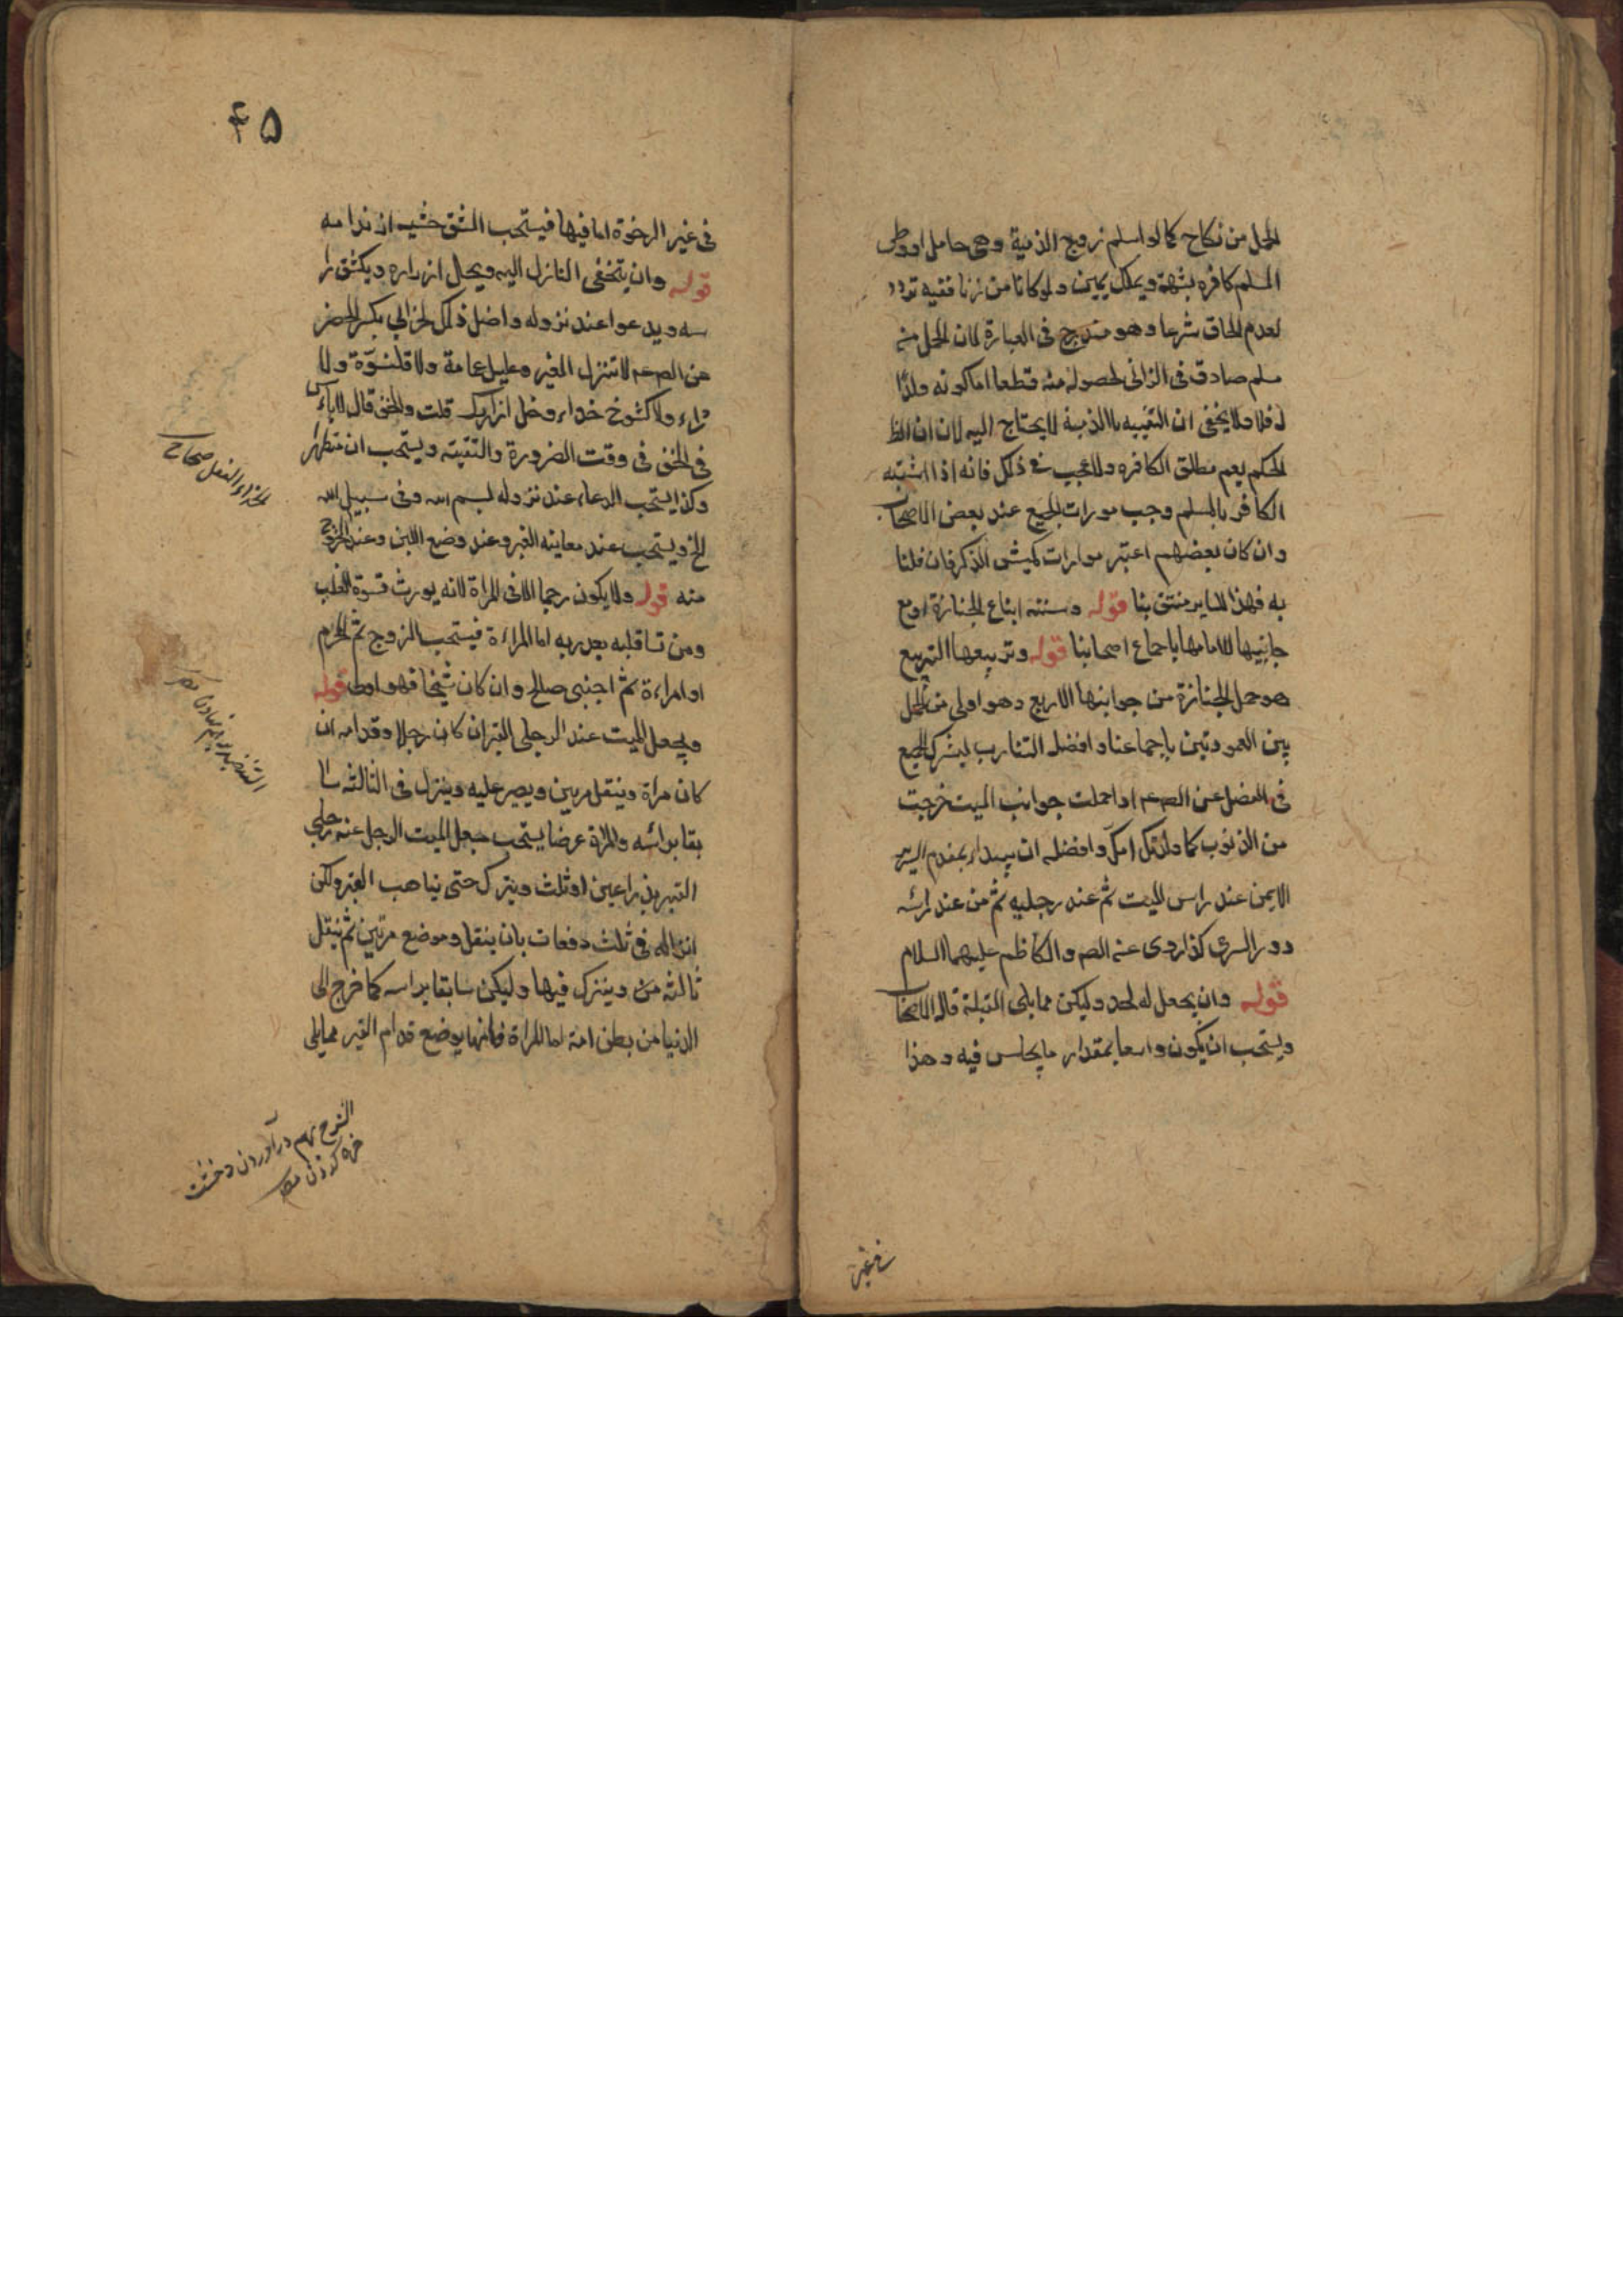 الحمل من نكاح كما لو اسلم زوج الذمية وهى حامل او وطى
المسلم كافره بشبهة ويملك يمين ولو كانا من زنا ففيه تردد
لعدم الحاق شرعا وهو مندرج فى العبارة لان الحمل من
مسلم صادق فى الزانى لحصوله منه قطعا اما كونه ولدًا
له فلا ولا يخفى ان التقييد بالذمية لا يحتاج اليه لان ان الظ
الحكم يعم مطلق الكافره ولا عجب فى ذلك فانه اذا اشتبه
الكافر بالمسلم وجب مورات الجميع عند بعض الاصحاب
وان كان بعضهم اعتبر موارات كميش الذكر فان قلنا
به فهذا المناير منتق بنا قوله وسننه اتباع الجنازة او مع
جانبيها لا امامها باجماع اصحابنا قوله وتربيعها التربيع
هو حمل الجنازة من جوانبها الاربع وهو اولى من الحمل
بين العمودتين باجماعنا وافضله التناوب ليشرك الجميع
فى الفضل عن الصادق عم اذا حملت جوانب الميت خرجت
من الذنوب كما ولدتك امك وافضله ان يبداء بمقدم السرير
الايمن عند راس الميت ثم عند رجليه ثم من عند رائسه
دور السرى كذا روى عنه الصم والكاظم عليهما السلام
قوله وان يجعل له لحد وليكن مما يلى القبلة قاله الاصحاب
ويستحب ان يكون واسعا بمقدار ما يجلس فيه وهذا
فى غير
۴۵
فى غير الرخوة اما فيها فيستحب الشق خشية ان ندامه
قوله وان يتحفى النازل اليه ويحل ازراره ويكشف را
سه ويدعوا عند نزوله واصل ذلك لخز ابى بكر الحضر
عن الصم عم لا تنزل القبر وعليك عمامة ولا قلنسوّة ولا
رداء ولا كشوخ حذاء وحل ازارك قلت والخف قال لا باءس
فى الخف فى وقت الضرورة والتقيّة ويستحب ان متطهرا
وكذا يستحب الدعاء عند نزوله بسم الله وفى سبيل الله
الخ ويستحب عند معاينه القبر وعند وضع اللبن وعند الخروج
منه قوله ولا يكون رحما الا فى المراة لانه يورث قسوة القلب
ومن قسا قلبه بعد ربه اما المراءة فيستحب الزوج ثم المحرم
او امراءة ثم اجنبى صالح وان كان شيخا فهو اولى قوله
ويجعل الميت عند الرجلى القبر ان كان رجلا وقدامه ان
كان مراة وينقل مرتين ويصبر عليه وينزل فى الثالثه سا
بقا برائسه والمراة عرضا يستحب جعل الميت الرجل عند رجلى
القبر بذراعين او ثلث ويترك حتى يتاهب القبر وليكن
انزاله فى ثلث دفعات بان ينقل وموضع مرتين ثم ينقل
ثالثه من ويترك فيها وليكن سابقا براسه كما خرج الى
الدنيا من بطن امه اما المراة فانها يوضع قدام القبر مما يلى
الحذاء النعل صحاح
الشرج بهم درآوردن وخشت